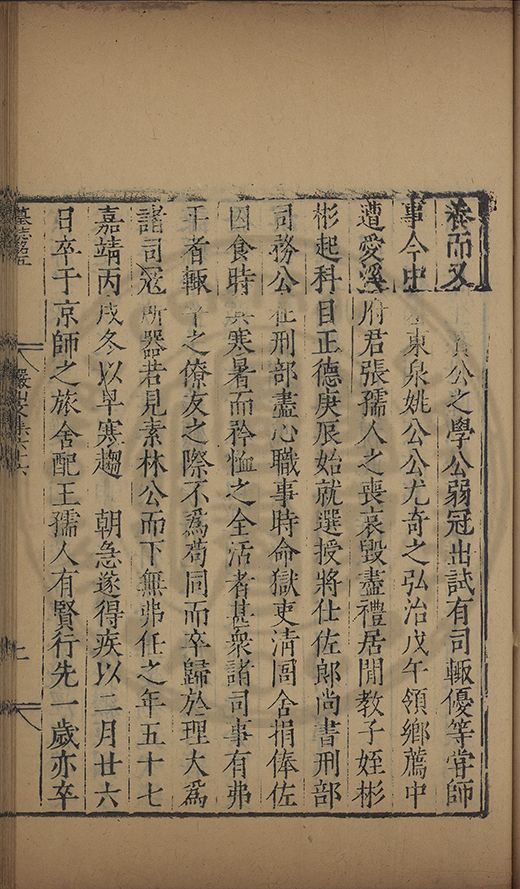 養而又公之學公弱冠出試有司輙優等嘗師
事今中東泉姚公公尤奇之弘治戊午領鄉薦中
遭愛溪府君張孺人之喪哀毀盡禮居閒教子姪彬
彬起科目正德庚辰始就選授將仕佐郎尚書刑部
司務公在刑部盡心職事時命獄吏清囹舍捐俸佐
囚食時其寒暑而矜恤之全活者甚衆諸司事有弗
平者輙平之僚友之際不爲苟同而卒歸於理大爲
諸司冦所器若見素林公而下無弗任之年五十七
嘉靖丙戌冬以早寒趨　朝急遂得疾以二月廿六
日卒于京師之旅舍配王孺人有賢行先一歲亦卒
墓誌銘五
上